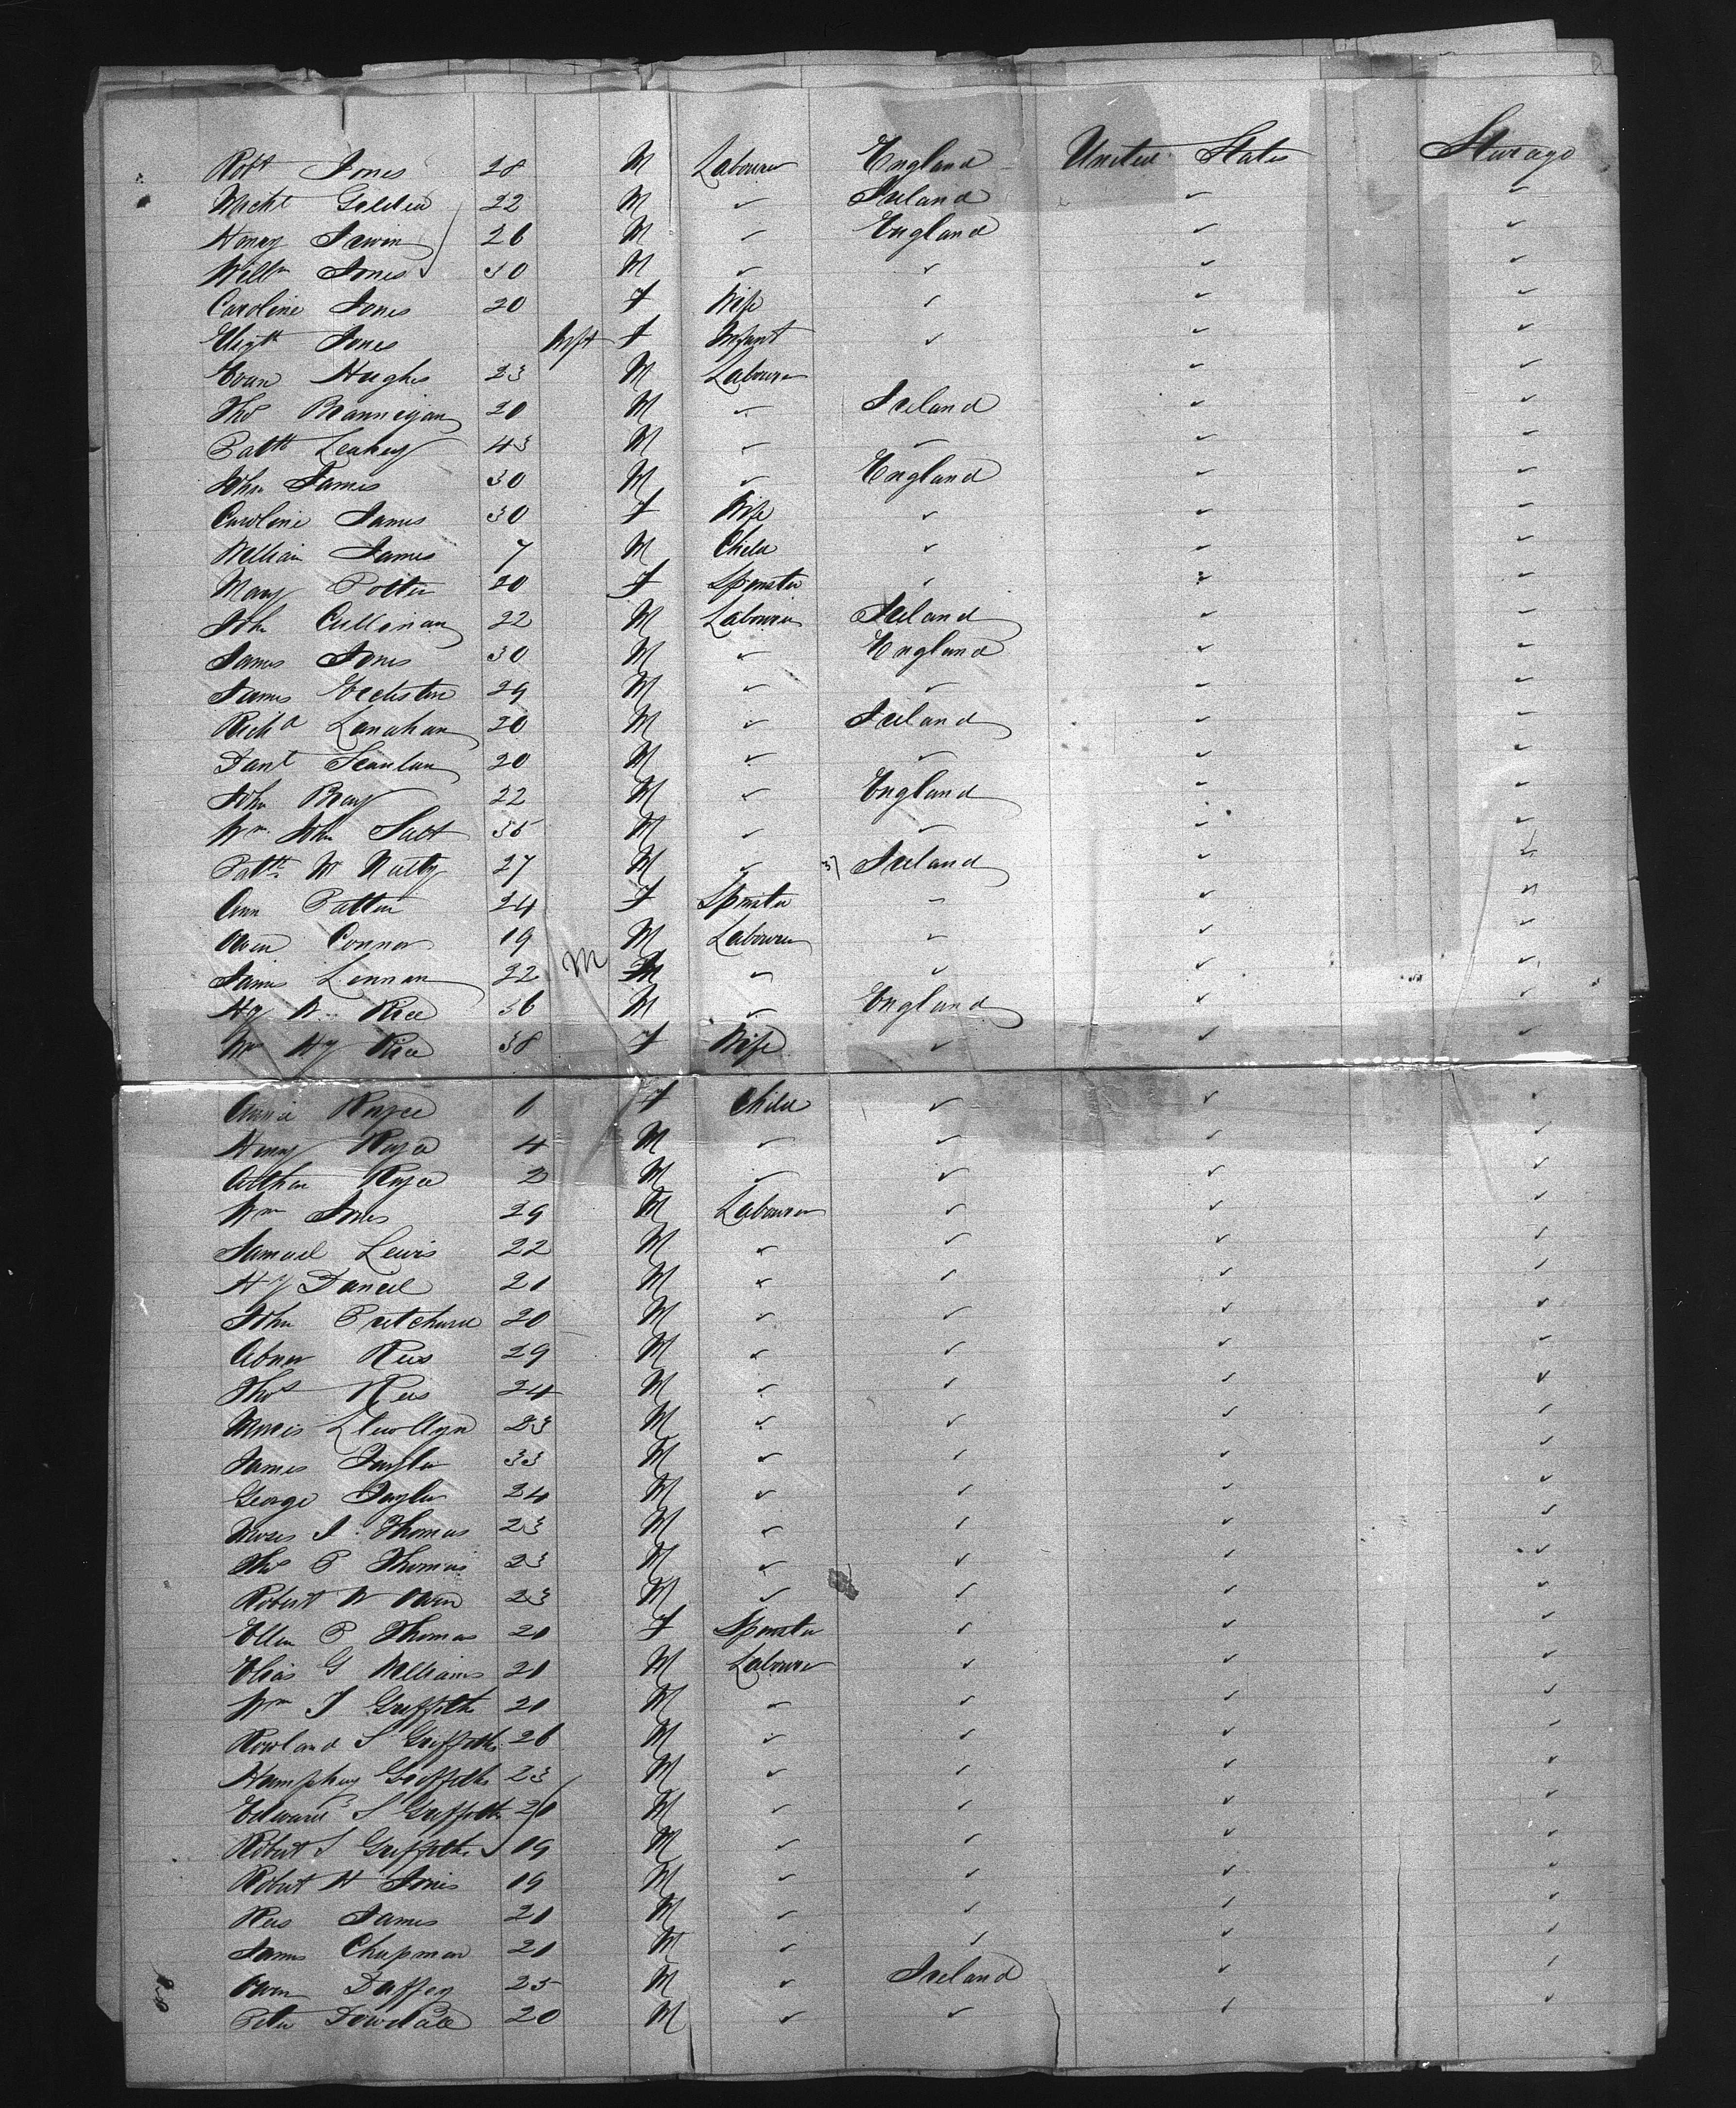 Robt Jones 28 M Labourer England United States Steerage
Michl Golden 22 M ✓ Ireland ✓ ✓
Henry Irwin 26 M ✓ England ✓ ✓
Willm Jones 30 M ✓ ✓ ✓ ✓
Caroline Jones 20 F Wife ✓ ✓ ✓
Elizth Jones Inft F Infant ✓ ✓ ✓
Evan Hughes 23 M Labourer ✓ ✓
Thos Brannigan 20 M ✓ Ireland ✓ ✓
Patk Leahey 43 M ✓ ✓ ✓ ✓
John James 30 M ✓ England ✓ ✓
Caroline James 30 F Wife ✓ ✓ ✓
William James 7 M Child ✓ ✓ ✓
Mary Potter 20 F Spinster ✓ ✓ ✓
John Cullinan 22 M Labourer Ireland ✓ ✓
James Jones 30 M ✓ England ✓ ✓
James Eccleston 29 M ✓ ✓ ✓ ✓
Richd Lanahan 20 M ✓ Ireland ✓ ✓
Danl Scanlan 20 M ✓ ✓ ✓ ✓
John Bray 22 M ✓ England ✓ ✓
Wm John Salt 35 M ✓ ✓ ✓ ✓
Patk Mc Nulty 27 M ✓ 37 Ireland ✓ ✓
Ann Patten 24 F Spinster ✓ ✓ ✓
Owen Connor 19 M Labourer ✓ ✓ ✓
James Lennan 22 M M ✓ ✓ ✓ ✓
Hy W. Rice 36 M ✓ England ✓ ✓
Mrs Hy Rice 38 F Wife ✓ ✓ ✓
Annie Royce 6 F Child ✓ ✓ ✓
Henry Royce 4 M ✓ ✓ ✓ ✓
Arthur Royce 2 M ✓ ✓ ✓ ✓
Wm Jones 29 M Labourer ✓ ✓ ✓
Samuel Lewis 22 M ✓ ✓ ✓ ✓
Hy Daniel 21 M ✓ ✓ ✓ ✓
John Pritchard 20 M ✓ ✓ ✓ ✓
Abner Rees 29 M ✓ ✓ ✓ ✓
Thos Rees 24 M ✓ ✓ ✓ ✓
Morris Llewellyn 23 M ✓ ✓ ✓ ✓
James Taylor 33 M ✓ ✓ ✓ ✓
George Taylor 24 M ✓ ✓ ✓ ✓
Moses J. Thomas 23 M ✓ ✓ ✓ ✓
Thos P Thomas 23 M ✓ ✓ ✓ ✓
Robert W Owen 23 M ✓ ✓ ✓ ✓
Ellen P Thomas 20 F Spinster ✓ ✓ ✓
Elias G Williams 21 M Labourer ✓ ✓ ✓
Wm J Griffith 20 M ✓ ✓ ✓ ✓
Rowland S Griffiths 26 M ✓ ✓ ✓ ✓
Humphrey Griffiths 23 M ✓ ✓ ✓ ✓
Edward S Griffiths 21 M ✓ ✓ ✓ ✓
Robert S Griffiths 19 M ✓ ✓ ✓ ✓
Robert H Jones 19 M ✓ ✓ ✓ ✓
Rees James 21 M ✓ ✓ ✓ ✓
James Chapman 21 M ✓ ✓ ✓ ✓
Owen Duffey 25 M ✓ Ireland ✓ ✓
Peter Dowdall 20 M ✓ ✓ ✓ ✓